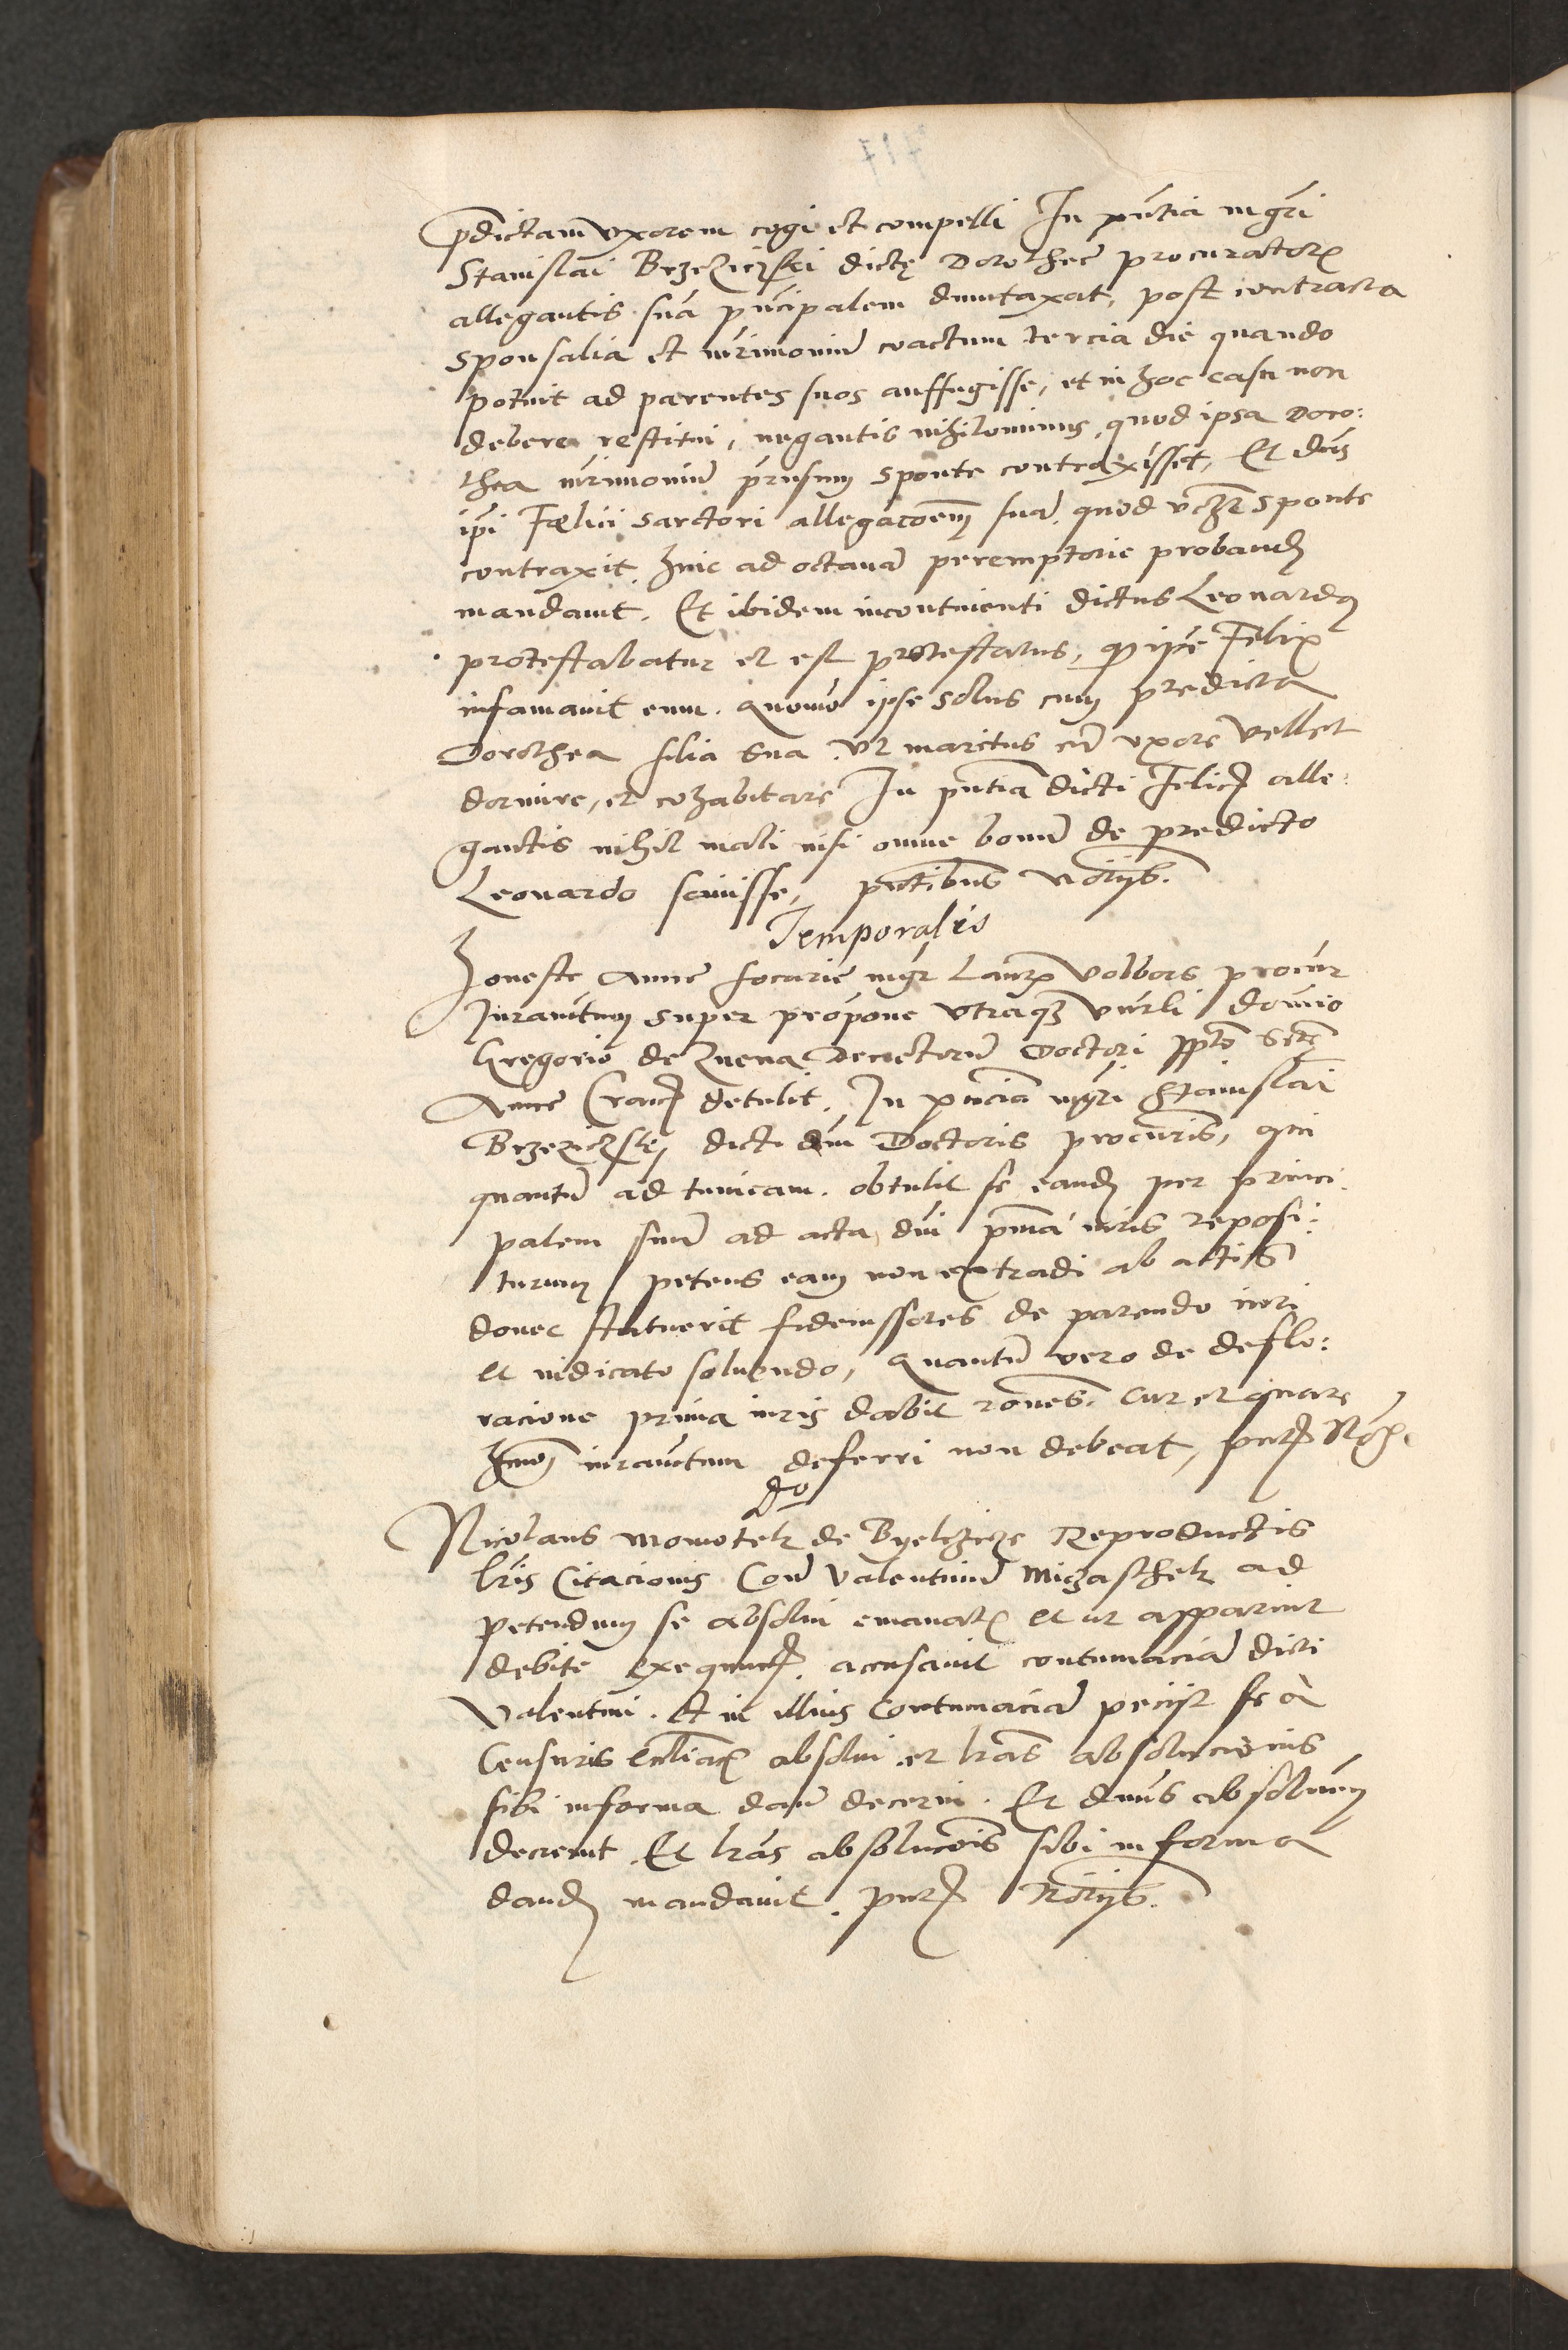 p̄dictam vxorem cogi et compelli In pn̄tia mgr̄i
Stanislai Brzeziczski dictę Dorotheę procuratorꝭ
allegantis suā pn̄cipalem dumtaxat, post contracta
sponsalia et mr̄imoniū coactum tercia die quando
potuit ad parentes suos auffugisse, et in hoc casu non
debere restitui, negantis nihilominus, quod ipsa Doro:
thea mr̄imoniū prn̄sum sponte contraxisset, Et dn̄s
ip̄i Fælici Sartori allegac̄oem suā, quod vcz̄ sponte
contraxit, hinc ad octauā peremptorie proband
mandauit. Et ibidem incontinenti dictus Leonardꝰ
protestabatur et est protestatus, ꝙ ip̄e Felix
infamauit eum. quomō ipse solus cum predicta
Dorothea filia sua vt maritus cū vxore vellet
dormire, et cohabitare In pn̄tia dicti Felicꝭ alle:
gantis nihil mali nisi omne bonū de predicto
Leonardo sciuisse, pn̄tibus notījs.
Temporalis
Honeste Anne focarie mgr̄ Laur Volbors procur̄
Juramentum super propone vtraqꝫ dn̄o
Gregorio de Decretorū Doctori
Anne detulit. In pn̄cia mgr̄i Stanislai
Brzeziczskÿ dicti dn̄i Doctoris procur̄is, qui
quantū ad tunicam. obtulit se eand per princi:
palem suū ad acta dn̄i pīna iuris reposi:
turum petens eam non extradi ab actis
donec statuerit fideiussores de parendo iuri
et iudicato soluendo, Quantū vero de deflo:
racione prima iuris dabit rōnes. Cur et quare
juramentum deferri non debeat, pn̄tꝭ Nōt.
Dō
Nicolaus Momotek de Byelczicze Reproductis
lr̄is Citacionis Con̄ Valentinū Miczaschek ad
petendum se absolui emanatꝭ et ut apparuit
debite exequutꝭ. accusauit contumaciā dicti
Valentini. Et in illius Contumaciā pecijt se à
Censuris ecclīacꝭ absolui et lr̄as absolucionis
sibi in forma dari decerni. Et dn̄us absoluen
decreuit Et lr̄as absoluc̄ois sibi in forma
dand mandauit. pn̄tꝭ Notījs.